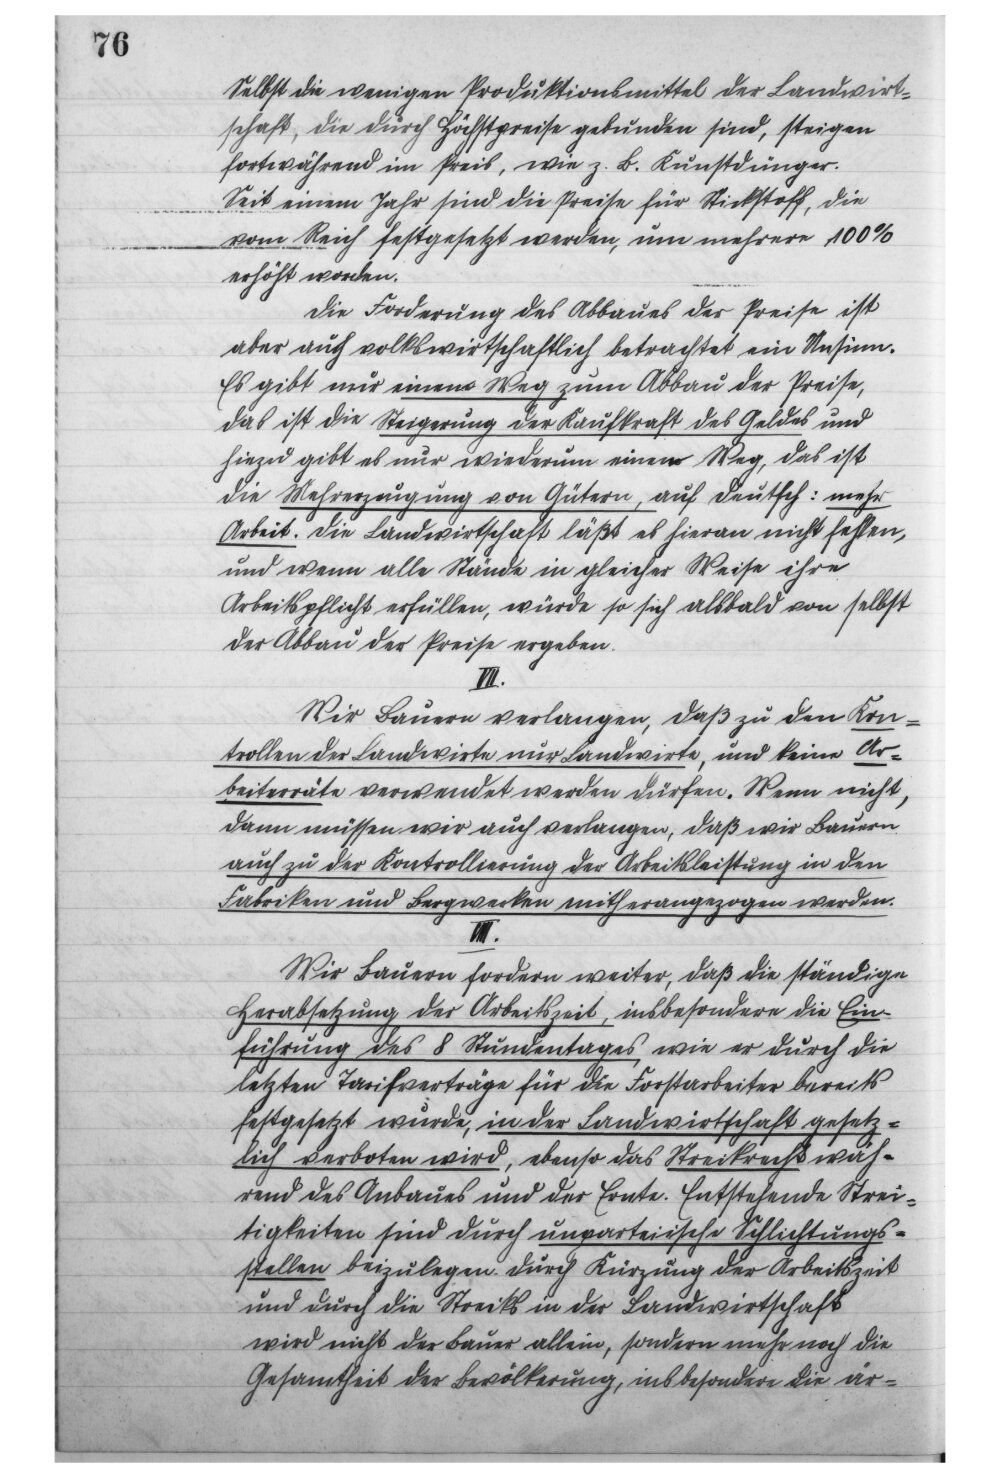 76
Selbst die wenigen Produktionsmittel der Landwirt=
schaft, die durch Höchstpreise gebunden sind, steigen
fortwährend im Preis, wie z. B. Kunstdünger.
Seit einem Jahr sind die Preise für Stickstoff, die
vom Reich festgesetzt werden, um mehrere 100%
erhöht worden.
Die Forderung des Abbaues der Preise ist
aber auch volkswirtschaftlich betrachtet ein Unsinn.
Es gibt nur einen Weg zum Abbau der Preise,
das ist die Steigerung der Kaufkraft des Geldes und
hiezu gibt es nur wiederum einen Weg, das ist
die Mehrerzeugung von Gütern, auf deutsch: mehr
Arbeit. Die Landwirtschaft läßt es hieran nicht fehlen,
und wenn alle Stände in gleicher Weise ihre
Arbeitspflicht erfüllen, würde so sich alsbald von selbst
der Abbau der Preise ergeben.
VII.
Wir Bauern verlangen, daß zu den Kon=
trollen der Landwirte nur Landwirte, und keine Ar=
beiterräte verwendet werden dürfen. Wenn nicht,
dann müssen wir auch verlangen, daß wir Bauern
auch zu der Kontrollierung der Arbeitsleistung in den
Fabriken und Bergwerken mitherangezogen werden.
VIII.
Wir Bauern fordern weiter, daß die ständige
Herabsetzung der Arbeitszeit, insbesondere die Ein-
führung des 8 Stundentages, wie er durch die
letzten Tarifverträge für die Forstarbeiter bereits
festgesetzt wurde, in der Landwirtschaft gesetz=
lich verboten wird, ebenso das Streikrecht wäh-
rend des Anbaues und der Ernte. Entstehende Strei=
tigkeiten sind durch unparteiische Schlichtungs=
stellen beizulegen. Durch Kürzung der Arbeitszeit
und durch die Streiks in der Landwirtschaft
wird nicht der Bauer allein, sondern mehr noch die
Gesamtheit der Bevölkerung, insbesondere die är=